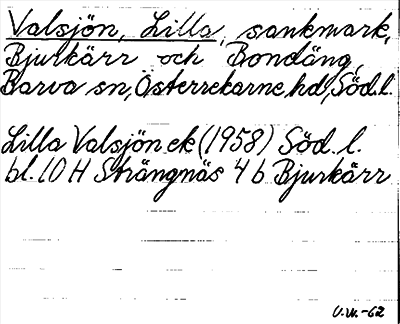 Valsjön, Lilla, sankmark,
Bjurkärr och Bondäng,
Barva sn, Österrekarne hd, Söd.l.
Lilla Valsjön ek (1958) Söd. l.
bl. 10 H Strängnäs 4 b Bjurkärr
U.W.-62